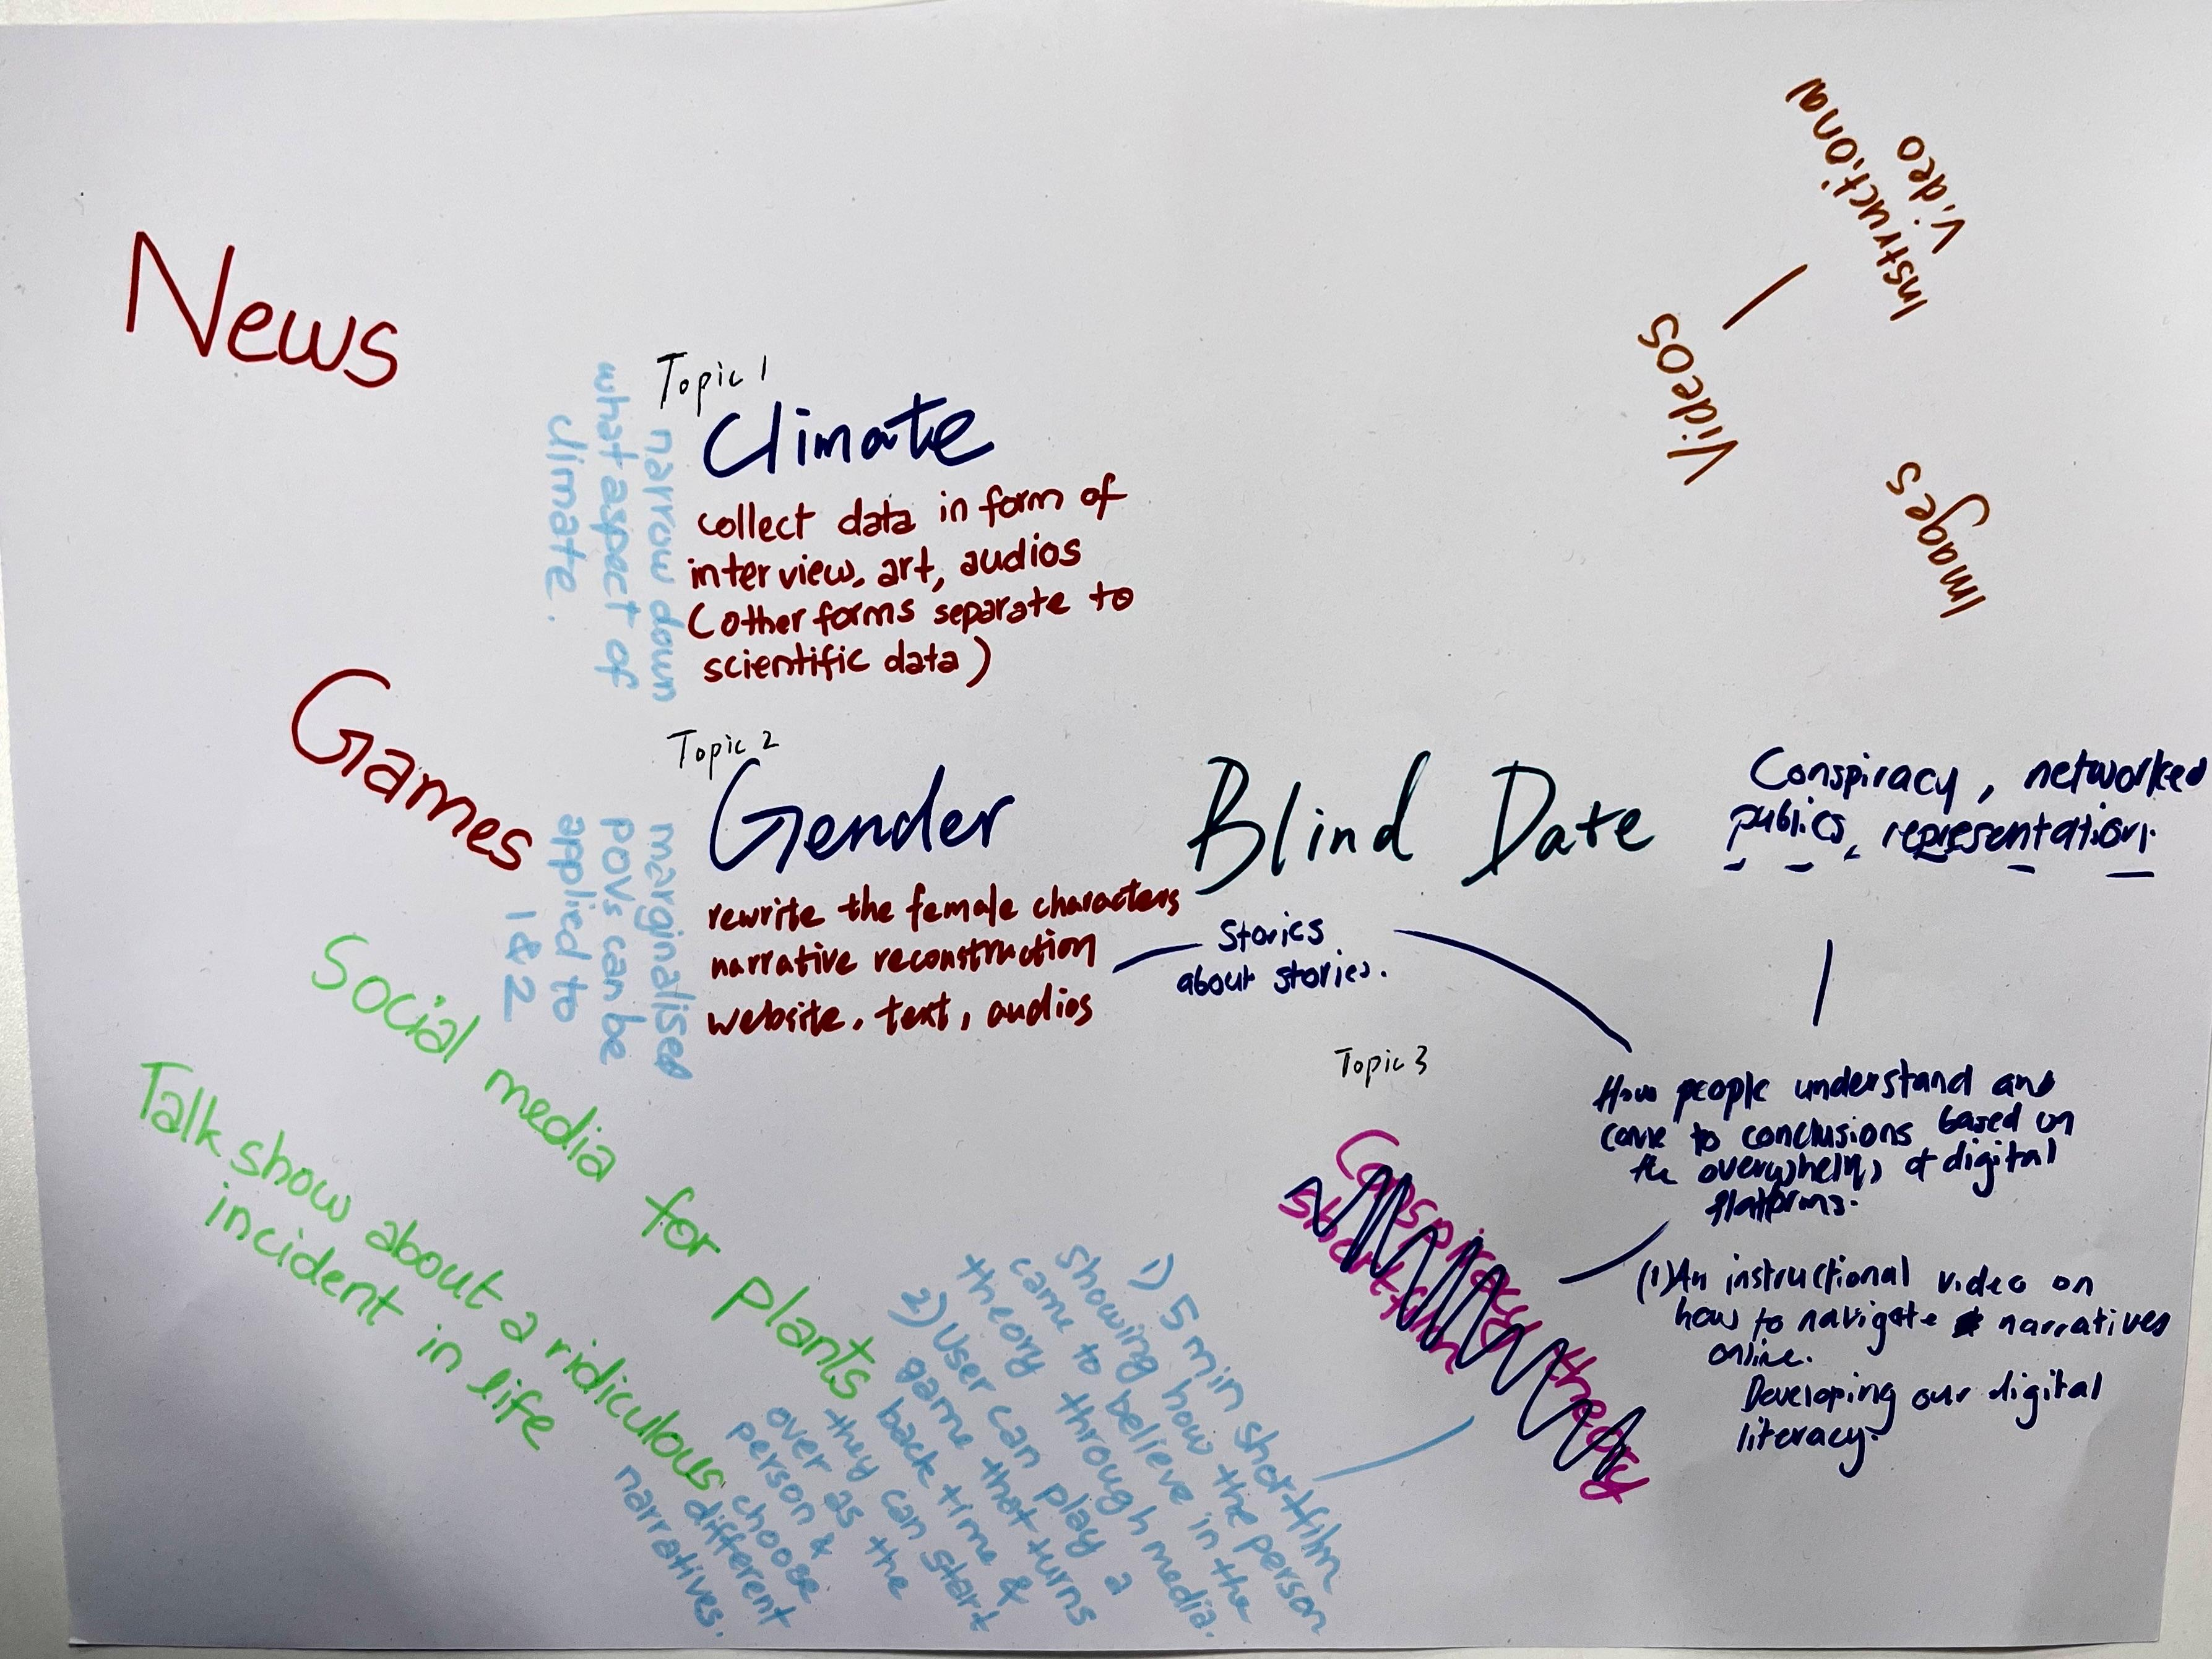 News
Games
Topic 1
Climate
collect data in form of
interview, art, audios
(other forms separate to
scientific data)
narrow down
what aspect of
climate.
Topic 2
Gender
rewrite the female characters
narrative reconstruction
website, text, audios
marginalised
povs can be
applied to
1 & 2
Blind Date
Stories
about stories.
Videos
Instructional
Video
Images
Conspiracy, networked
publics, representation.
How people understand and
come to conclusions based on
the of digital
platforms.
(1) An instructional video on
how to navigate narratives
online.
Developing our digital
literacy.
Topic 3
Conspiracy theory
shortfilm
1) 5 min shortfilm
showing how the person
came to believe in the
theory through media.
2) User can play a
game that turns
back time &
they can start
over as the
person &
choose
different
narratives.
Social media for plants
Talk show about a ridiculous
incident in life